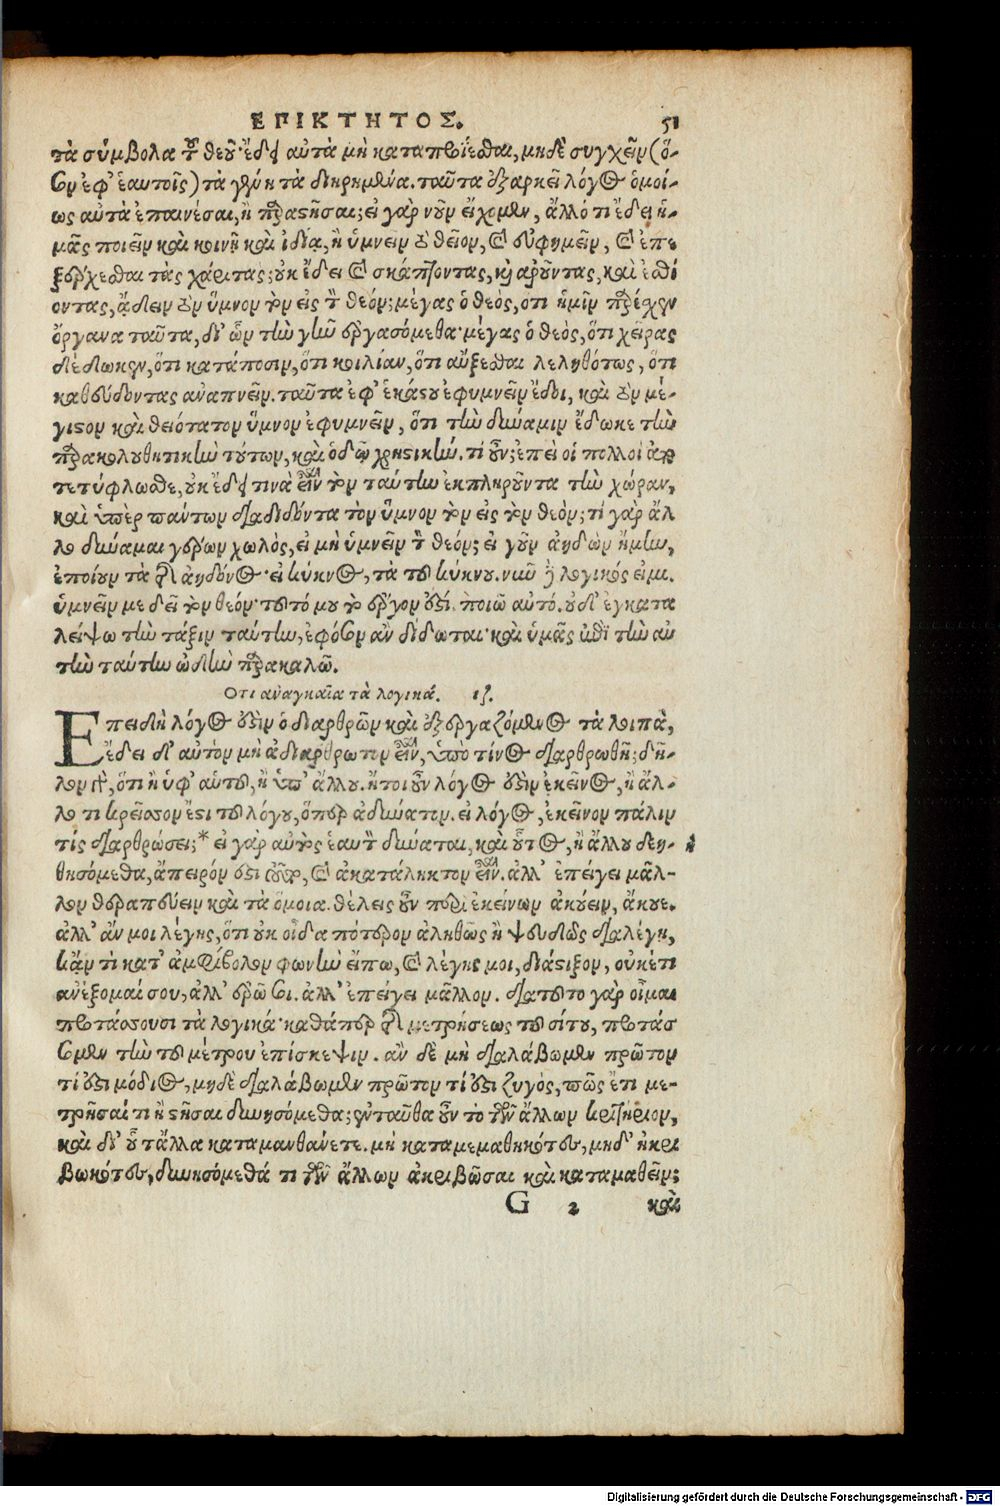 ΕΠΙΚΤΗΤΟΣ. 51
τὰ σύμβολα τοῦ θεοῦ· ἔδει αὐτὰ μὴ καταπροΐεσθαι, μηδὲ συγχεῖν (ὅ-
σον ἐφ' ἑαυτοῖς) τὰ γένη τὰ διῃρημένα. ταῦτα ἐξαρκεῖ λόγος ὁμοί-
ως αὐτὰ ἐπαινέσαι, ἢ παραστῆσαι; εἰ γὰρ νοῦν εἴχομεν, ἄλλό τι ἔδει ἡ-
μᾶς ποιεῖν καὶ κοινῇ καὶ ἰδίᾳ, ἢ ὑμνεῖν τὸ θεῖον, καὶ εὐφημεῖν, καὶ ἐπε-
ξέρχεσθαι τὰς χάριτας; οὐκ ἔδει καὶ σκάπτοντας, καὶ ἀροῦντας, καὶ ἐσθί
οντας, ᾄδειν τὸν ὕμνον τὸν εἰς τὸν θεόν; μέγας ὁ θεὸς, ὅτι ἡμῖν παρέσχεν
ὄργανα ταῦτα, δι' ὧν τὴν γῆν ἐργασόμεθα· μέγας ὁ θεὸς, ὅτι χεῖρας
δέδωκεν, ὅτι κατάποσιν, ὅτι κοιλίαν, ὅτι αὔξεσθαι λεληθότως, ὅτι
καθεύδοντας ἀναπνεῖν. ταῦτα ἐφ' ἑκάστου ἐφυμνεῖν ἔδει, καὶ τὸν μέ-
γιστον καὶ θειότατον ὕμνον ἐφυμνεῖν, ὅτι τὴν δύναμιν ἔδωκε τὴν
παρακολουθητικὴν τούτων, καὶ ὁδῷ χρηστικήν. τί οὖν; ἐπεὶ οἱ πολλοὶ ἀπο
τετύφλωσθε, οὐκ ἔδει τινὰ εἶναι τὸν ταύτην ἐκπληροῦντα τὴν χώραν,
καὶ ὑπὲρ πάντων διαδιδόντα τὸν ὕμνον τὸν εἰς τὸν θεόν; τί γὰρ ἄλ
λο δύναμαι γέρων χωλὸς, εἰ μὴ ὑμνεῖν τὸν θεόν; εἰ γοῦν ἀηδὼν ἤμην,
ἐποίουν τὰ τῆς ἀηδόνος· εἰ κύκνος, τὰ τοῦ κύκνου. νῦν δὲ λογικός εἰμι.
ὑμνεῖν με δεῖ τὸν θεόν· τοῦτό μου τὸ ἔργον ἐστί. ποιῶ αὐτό. οὐδ' ἐγκατα
λείψω τὴν τάξιν ταύτην, ἐφόσον ἂν δίδωται· καὶ ὑμᾶς ἐπὶ τὴν αὐ
τὴν ταύτην ᾠδὴν παρακαλῶ.
Οτι ἀναγκαῖα τὰ λογικά. ιζ.
Επειδὴ λόγος ἐστὶν ὁ διαρθρῶν καὶ ἐξεργαζόμενος τὰ λοιπὰ,
ἔδει δ' αὐτὸν μὴ ἀδιάρθρωτον εἶναι, ὑπὸ τίνος διαρθρωθῇ; δῆ-
λον γὰρ, ὅτι ἢ ὑφ' αὑτοῦ, ἢ ὑπ' ἄλλου. ἤτοι οὖν λόγος ἐστὶν ἐκεῖνος, ἢ ἄλ-
λο τι κρεῖσσον ἔστι τοῦ λόγου, ὅπερ ἀδύνατον. εἰ λόγος, ἐκεῖνον πάλιν
τίς διαρθρώσει;* εἰ γὰρ αὐτὸς ἑαυτὸν δύναται, καὶ οὗτος, ἢ ἄλλου δεη-
θησόμεθα, ἄπειρόν ἐστι τοῦτο, καὶ ἀκατάληκτον εἶναι. ἀλλ' ἐπείγει μᾶλ-
λον θεραπεύειν καὶ τὰ ὅμοια. θέλεις οὖν περὶ ἐκείνων ἀκούειν, ἄκουε.
ἀλλ' ἄν μοι λέγῃς, ὅτι οὐκ οἶδα πότερον ἀληθῶς ἢ ψευδῶς διαλέγῃ,
κἄν τι κατ' ἀμφίβολον φωνὴν εἴπω, καὶ λέγῃς μοι, διάστιξον, οὐκέτι
ἀνέξομαί σου, ἀλλ' ἐρῶ σοι. ἀλλ' ἐπείγει μᾶλλον. διατοῦτο γὰρ οἶμαι
προτάσσουσι τὰ λογικά· καθάπερ τῆς μετρήσεως τοῦ σίτου, προτάσ
σομεν τὴν τοῦ μέτρου ἐπίσκεψιν. ἂν δὲ μὴ διαλάβωμεν πρῶτον
τί ἐστι μόδιος, μηδὲ διαλάβωμεν πρῶτον τί ἐστι ζυγὸς, πῶς ἔτι με-
τρῆσαί τι ἢ στῆσαι δυνησόμεθα; ἐνταῦθα οὖν τὸ τῶν ἄλλων κριτήριον,
καὶ δι' οὗ τἄλλα καταμανθάνετε. μὴ καταμεμαθηκότες, μηδ' ἠκρι
βωκότες, δυνησόμεθά τι τῶν ἄλλων ἀκριβῶσαι καὶ καταμαθεῖν;
G 2 καὶ
Digitalisierung gefördert durch die Deutsche Forschungsgemeinschaft - DFG